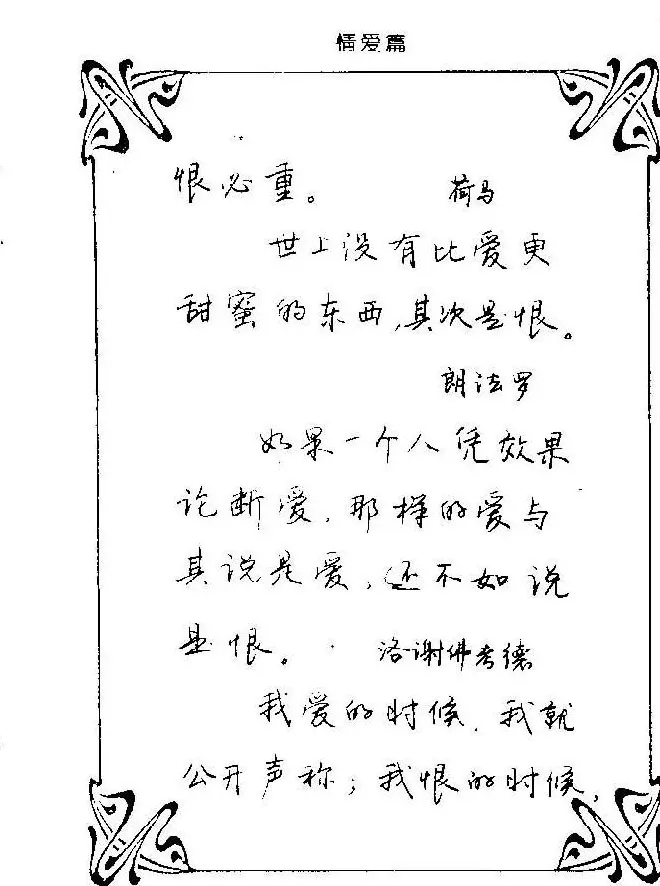 情爱篇
恨必重。 荷马
世上没有比爱更
甜蜜的东西,其次是恨。
朗法罗
如果一个人凭效果
论断爱,那样的爱与
其说是爱,还不如说
是恨。 洛谢佛考德
我爱的时候,我就
公开声称;我恨的时候,